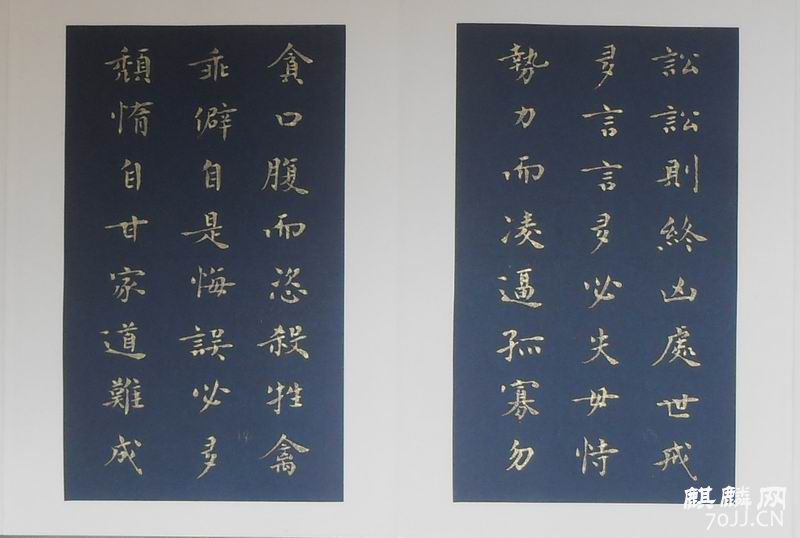 訟訟則終凶處世戒
多言言多必失毋恃
勢力而凌逼孤寡勿
貪口腹而恣殺牲禽
乖僻自是悔誤必多
頹惰自甘家道難成
麒麟网
70JJ.CN